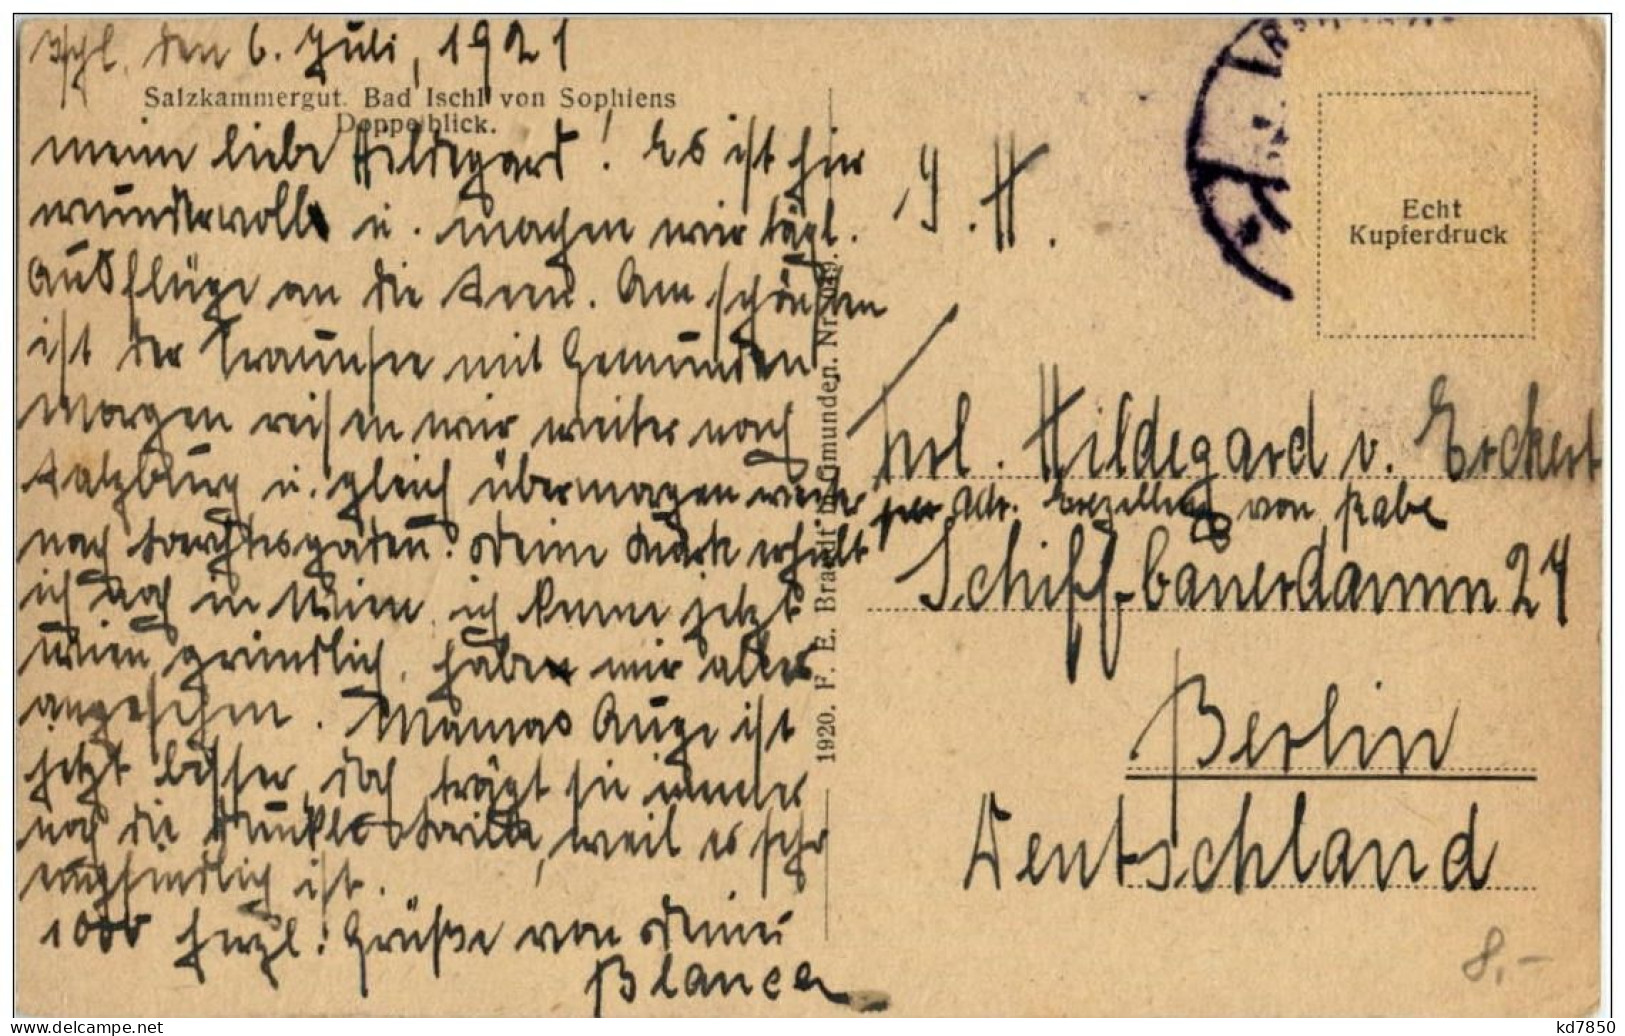 Ischl, den 6. Juli, 1921
Salzkammergut. Bad Ischl von Sophiens
Doppelblick.
meine liebe Hildegard! Es ist hier
wundervoll u. machen wir tägl.
Ausflüge an die Seen. Am schönsten
ist der Traunsee mit Gemunden
Morgen reisen wir weiter nach
Salzburg u. gleich übermorgen weiter
nach Berchtesgaden. Deine Karte erhielt
ich noch in Wien, ich kenne jetzt
Wien gründlich, haben wir alles
angesehen. Mamas Auge ist
jetzt besser, doch trägt sie immer
noch die dunkle Brille, weil es sehr
empfindlich ist.
1000 herzl. Grüße von Deiner
Blanca
1920. F. E. Brandt in Gmunden. Nr.
I. H.
Echt
Kupferdruck
Frl. Hildegard v. Erckert
per Adr. Exzellenz von Rabe
Schiff-bauerdamm 27
Berlin
Deutschland
8.-
kd7850